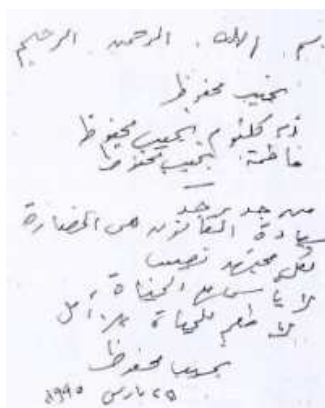 بسم الله الرحمن الرحيم
نجيب محفوظ
أم كلثوم نجيب محفوظ
فاطمة نجيب محفوظ
من جد وجد
سيادة القانون هى الحضارة
لكل مجتهد نصيب
لا يأس مع الحياة
لا طعم للحياة بلا أمل
نجيب محفوظ
٢٥ مارس ١٩٩٥